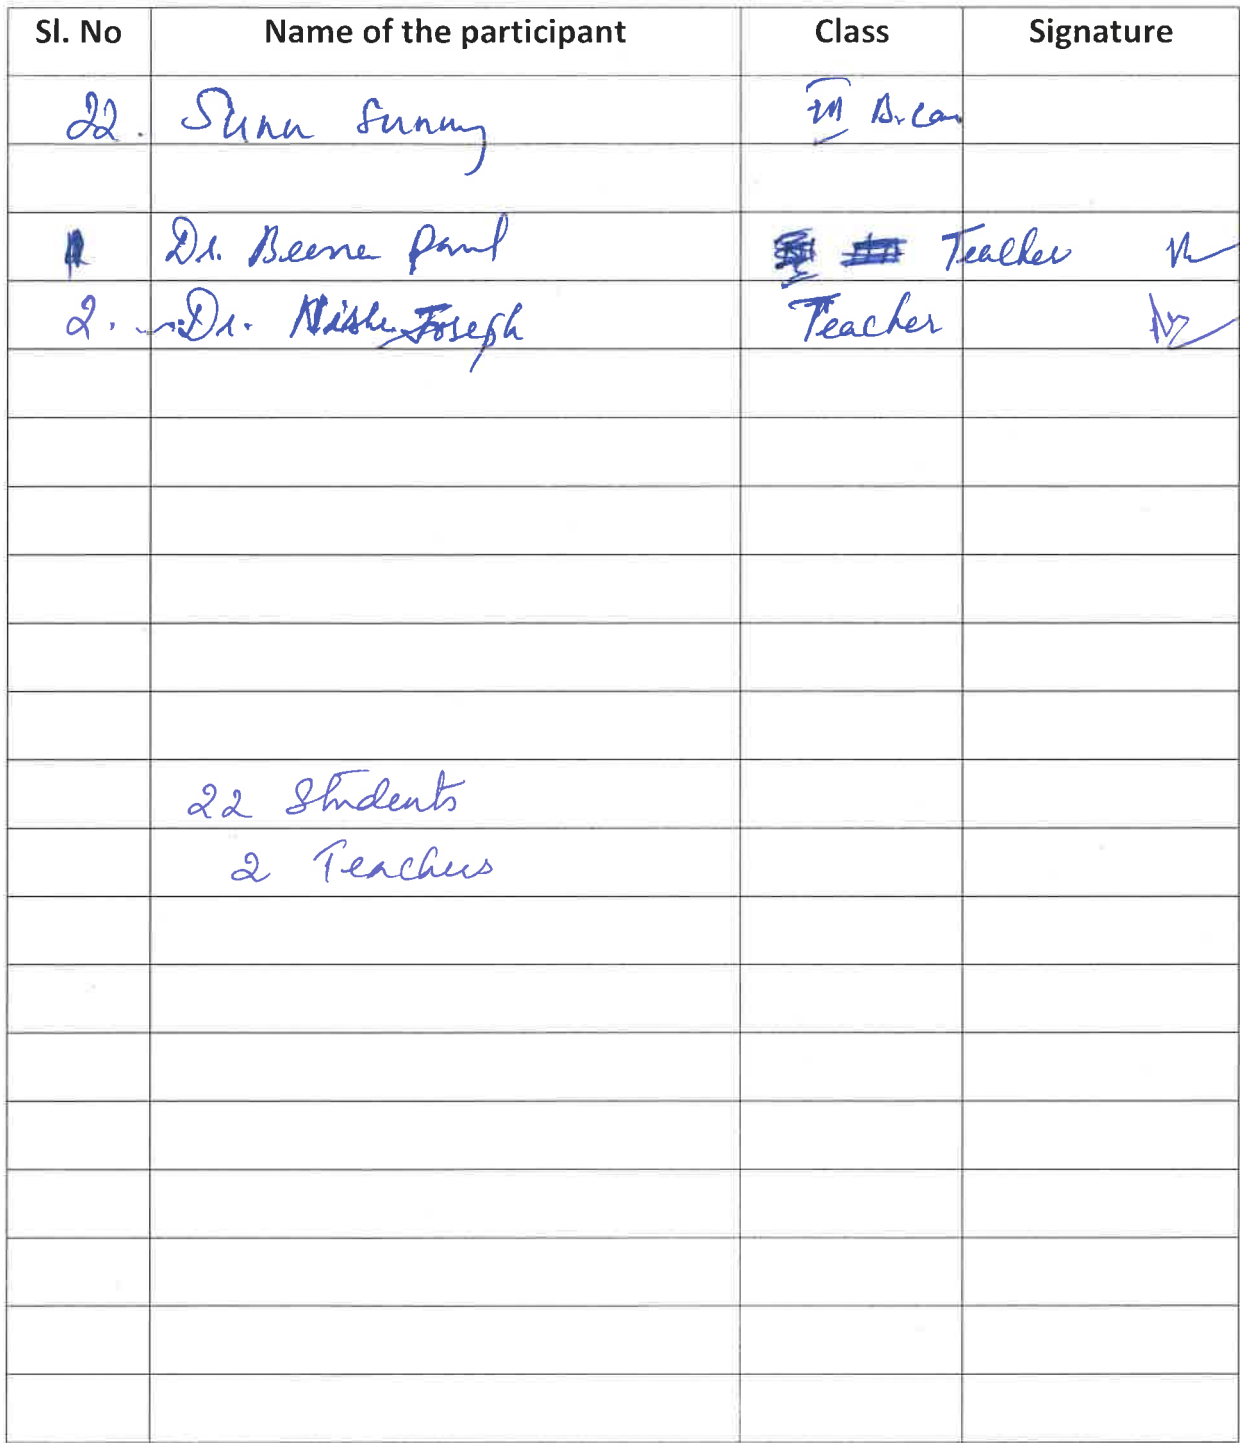 Sl. No Name of the participant Class Signature
22. Sunu Sunny III B.Com
Dr. Beena Paul Teacher
2. Dr. Nisha Joseph Teacher
22 Students
2 Teachers